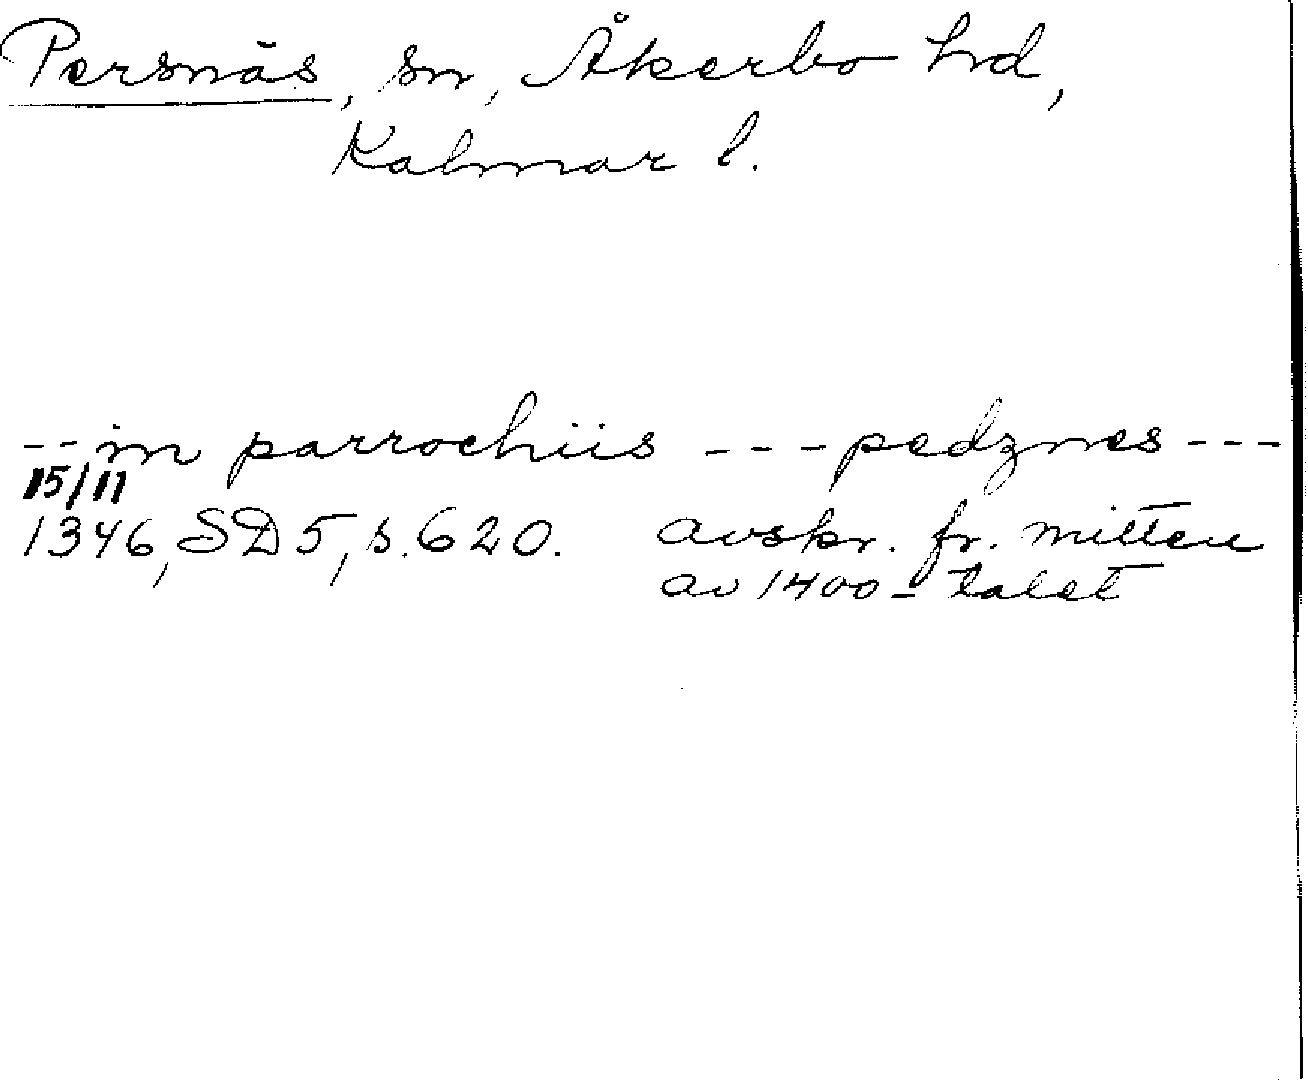 Persnäs, sn, Åkerbo hd,
Kalmar l.
-- in parrochiis --- pedznes ---
15/11
1346, SD 5, s. 620. avskr. fr. mitten
av 1400-talet